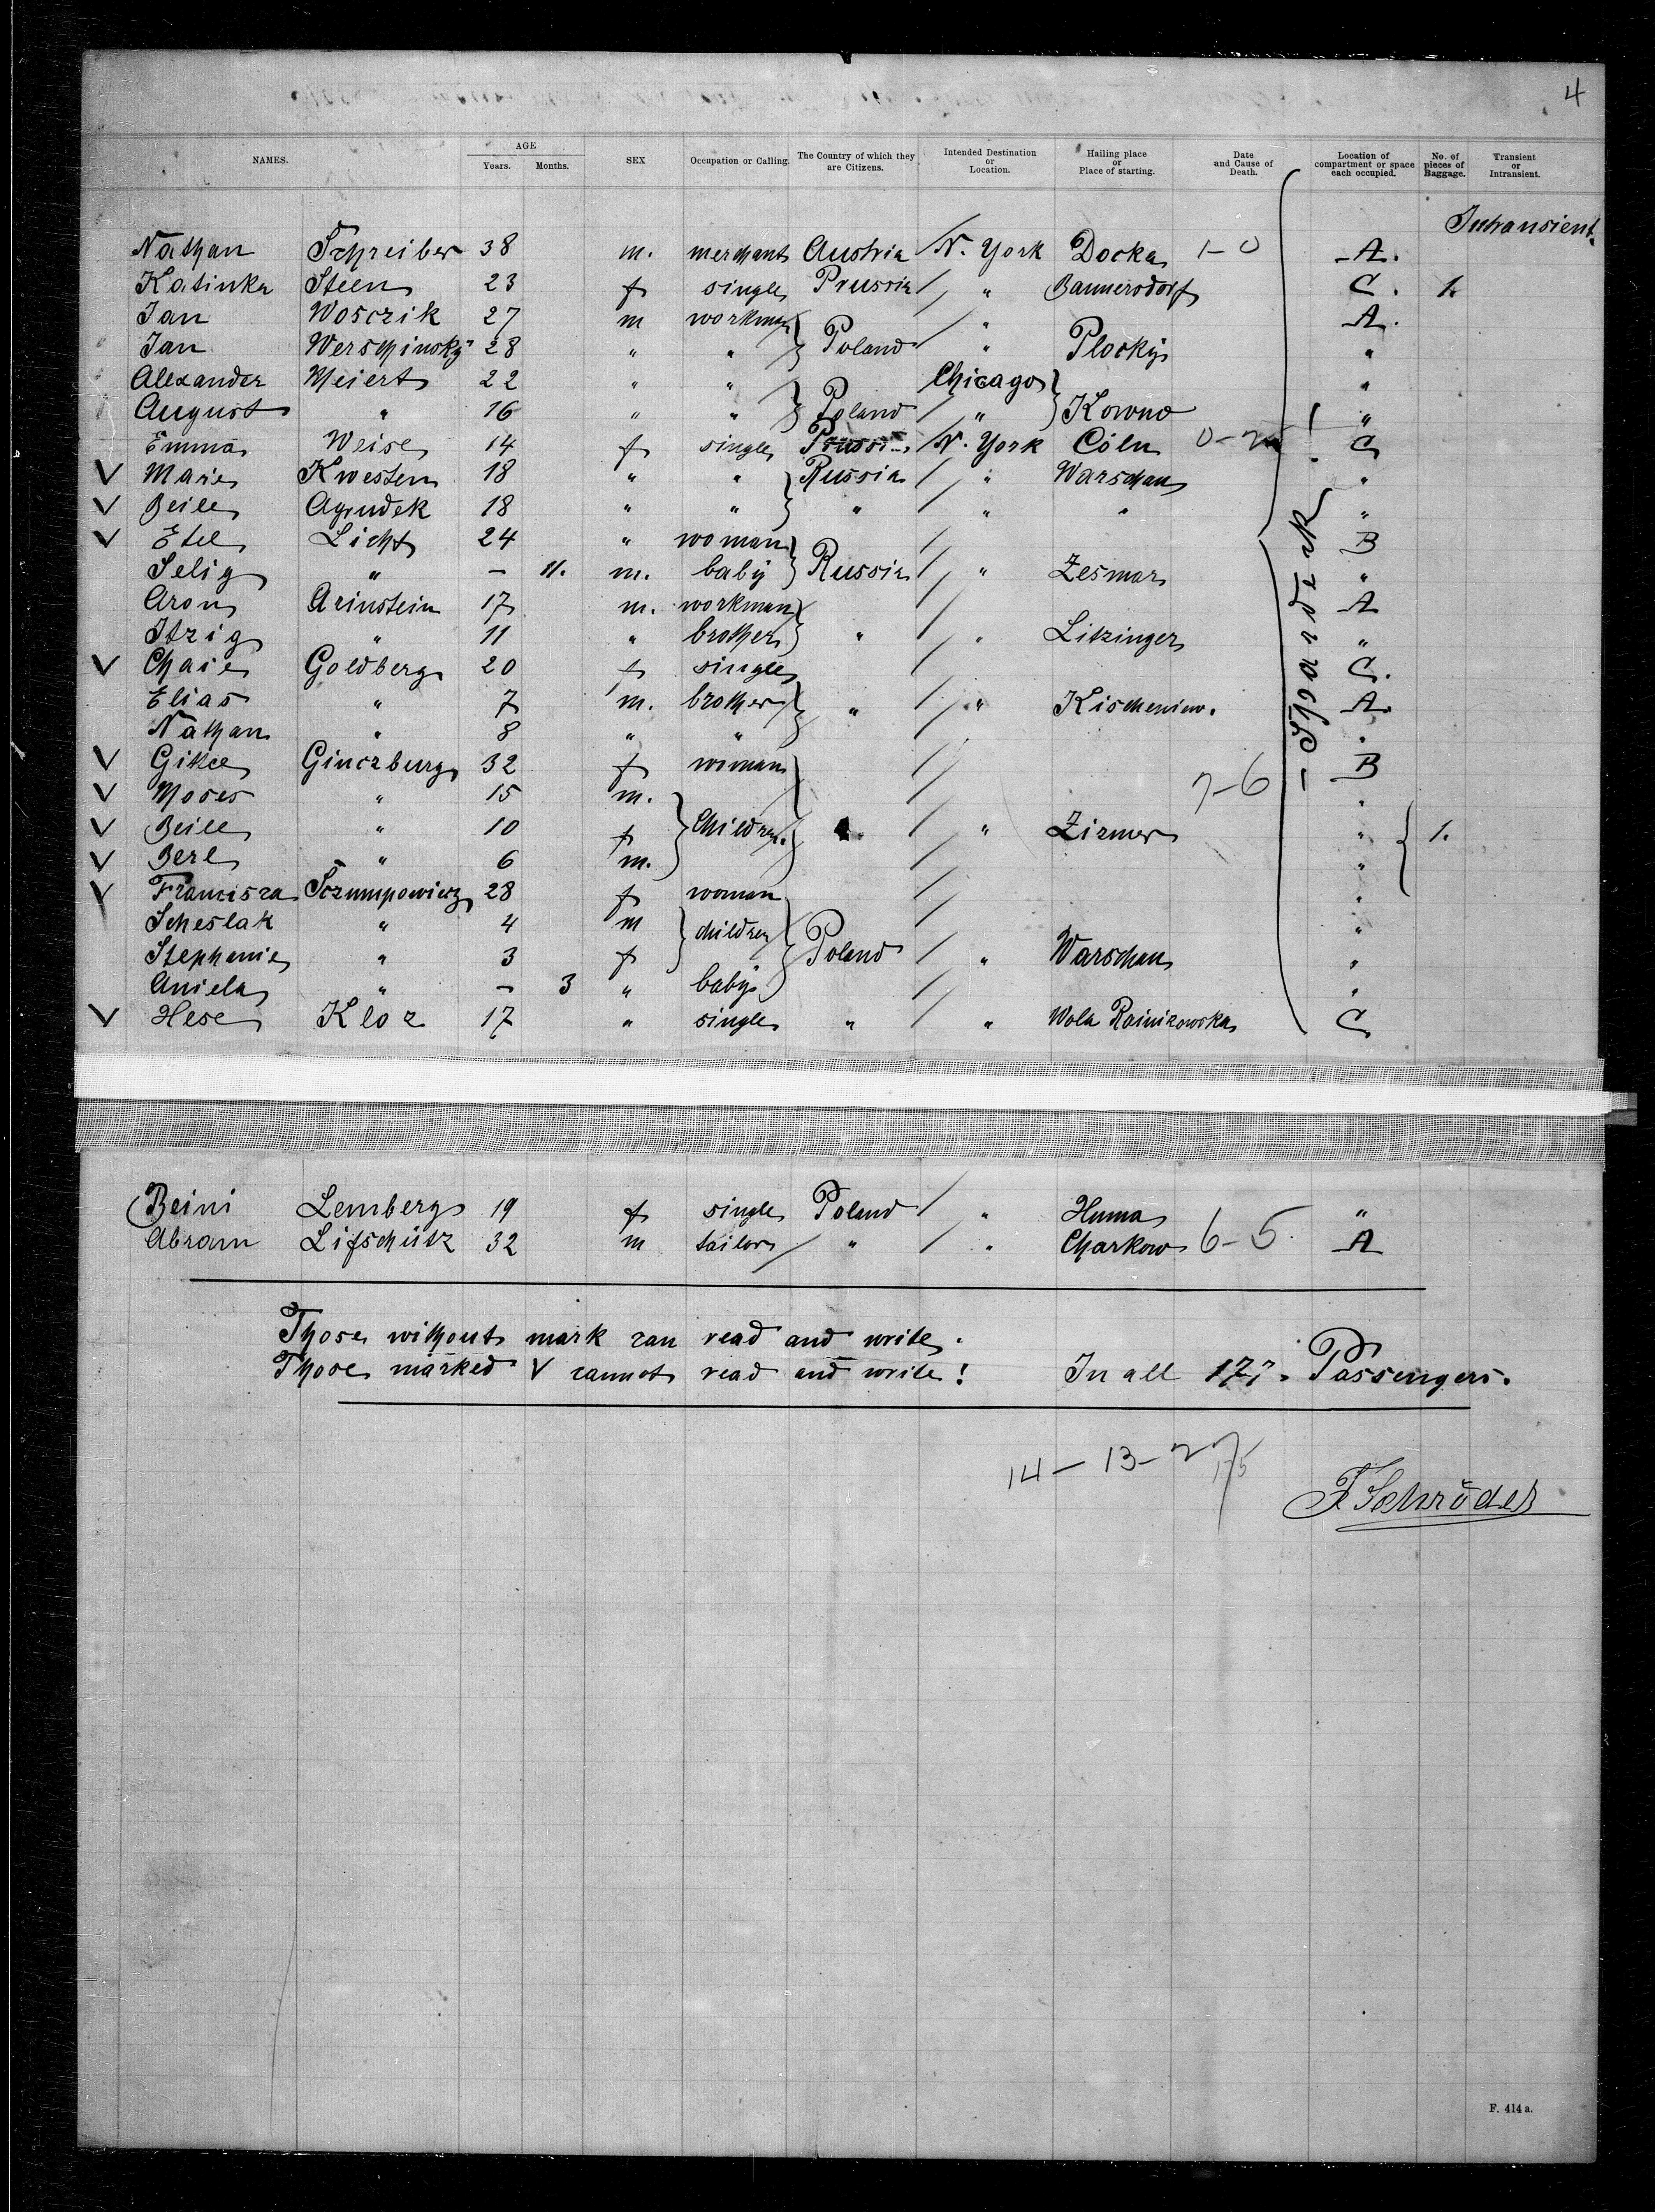 4
NAMES. AGE Years. Months. SEX Occupation or Calling. The Country of which they are Citizens. Intended Destination or Location. Hailing place or Place of starting. Date and Cause of Death. Location of compartment or space each occupied. No. of pieces of Baggage. Transient or Intransient.
Intransient.
Nathan Schreiber 38 m. merchant Austria N. York Docka 1-0 A.
Katinka Steen 23 f single Prussia " Bannersdorf C. 1.
Jan Wosczik 27 m workman " A.
Jan Werschinsky 28 " " Poland " Plocky "
Alexander Meiert 22 " " Chicago "
August " 16 " " Poland " Kowno "
Emma Weise 14 f single N. York Cöln C
V Marie Kwesten 18 " " Russia " Warschau "
V Beile Agudek 18 " " " " " "
V Etel Licht 24 " woman B
Selig " – 11. m. baby Russia " Zesmar "
Aron Arinstein 17 m. workman A
Itzig " 11 " brother " " Litzinger "
V Chaie Goldberg 20 f single C.
Elias " 7 m. brother " " Kischeniew. A.
Nathan " 8 " " "
V Gikel Ginczburg 32 f woman B
V Moses " 15 m. 7-6 "
V Beile " 10 f Children. " Zirmer " 1.
V Berl " 6 m. "
V Francisza Szumpowicz 28 f woman "
Scheslak " 4 m children "
Stephanie " 3 f Poland " Warschau "
Aniela " – 3 " baby "
V Hese Kloz 17 " single " " Wola Rainizowska C
Beini Lemberg 19 f single Poland " Huma "
Abram Lifschütz 32 m tailor " " Charkow 6-5 A
Those without mark can read and write.
Those marked V cannot read and write! In all 177. Passengers.
14 – 13 – 27
175
F Schröder
F. 414 a.